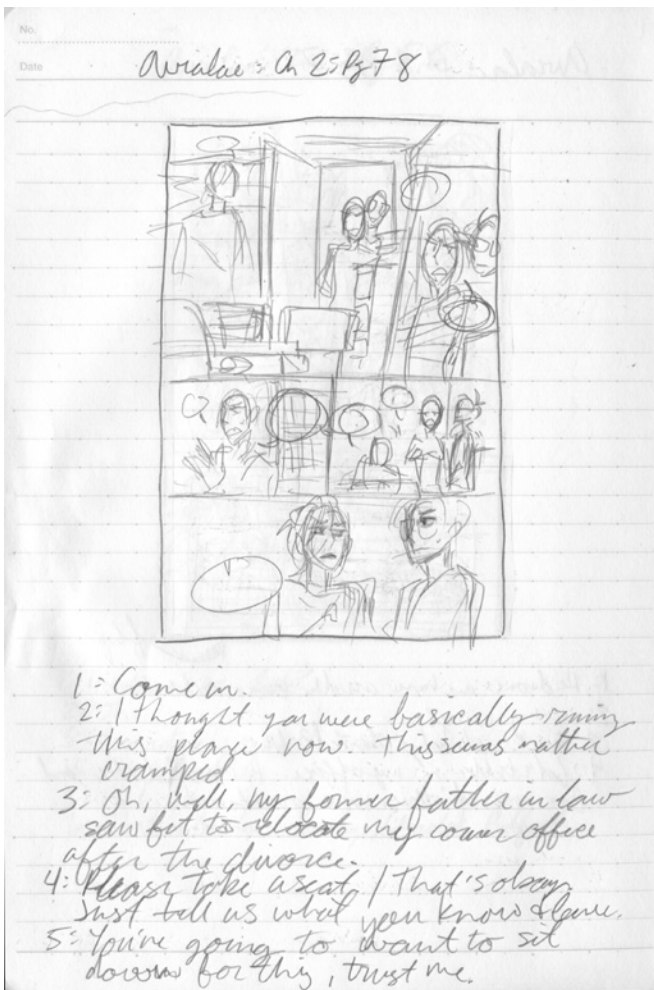 No.
Date
Avialae: Ch 2: Pg 78
1: Come in.
2: I thought you were basically running
this place now. This seems rather
cramped.
3: Oh, well, my former father in law
saw fit to relocate my corner office
after the divorce.
4: Please take a seat. / That's okay.
Just tell us what you know & leave.
5: You're going to want to sit
down for this, trust me.